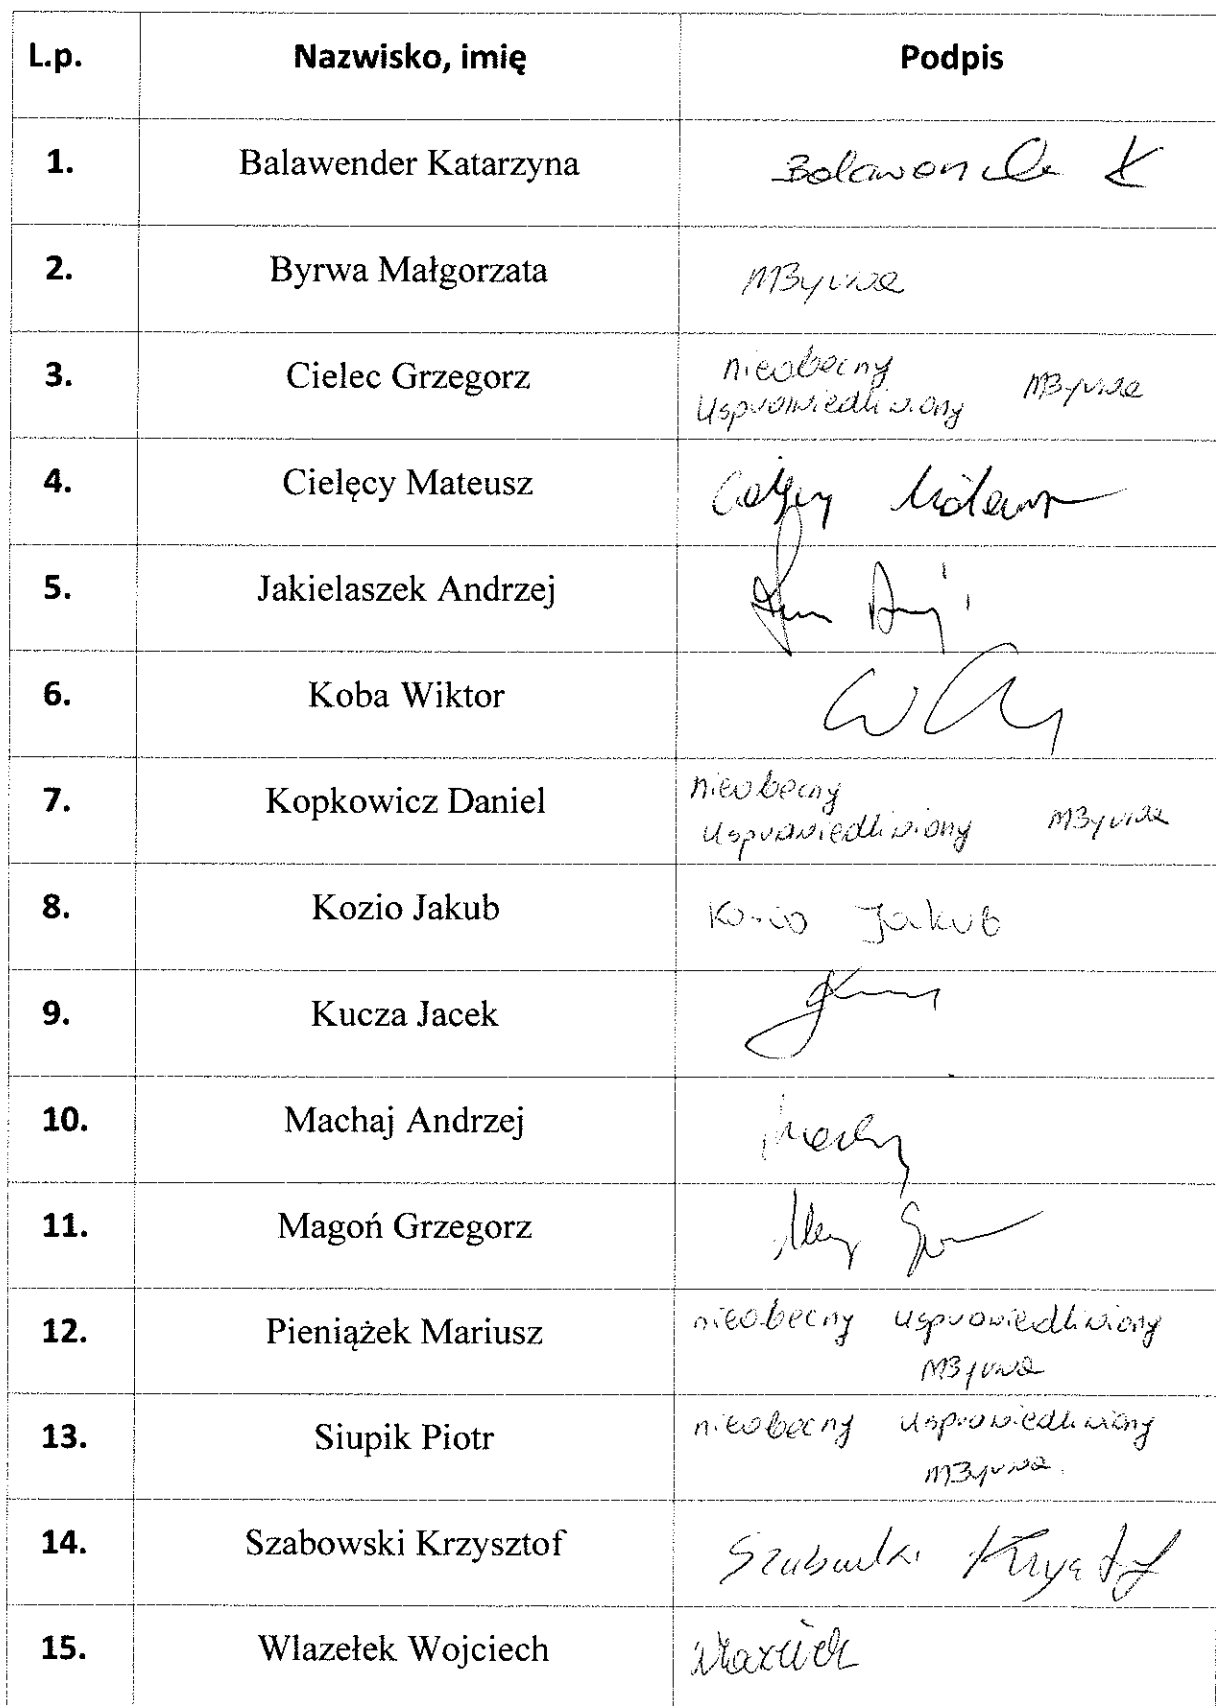 L.p. Nazwisko, imię Podpis
1. Balawender Katarzyna Balawender K
2. Byrwa Małgorzata MByrwa
3. Cielec Grzegorz nieobecny
usprawiedliwiony MByrwa
4. Cielęcy Mateusz Cielęcy Mateusz
5. Jakielaszek Andrzej
6. Koba Wiktor
7. Kopkowicz Daniel nieobecny
usprawiedliwiony MByrwa
8. Kozio Jakub Kozio Jakub
9. Kucza Jacek
10. Machaj Andrzej
11. Magoń Grzegorz
12. Pieniążek Mariusz nieobecny usprawiedliwiony
MByrwa
13. Siupik Piotr nieobecny usprawiedliwiony
MByrwa
14. Szabowski Krzysztof Szabowski Krzysztof
15. Wlazełek Wojciech